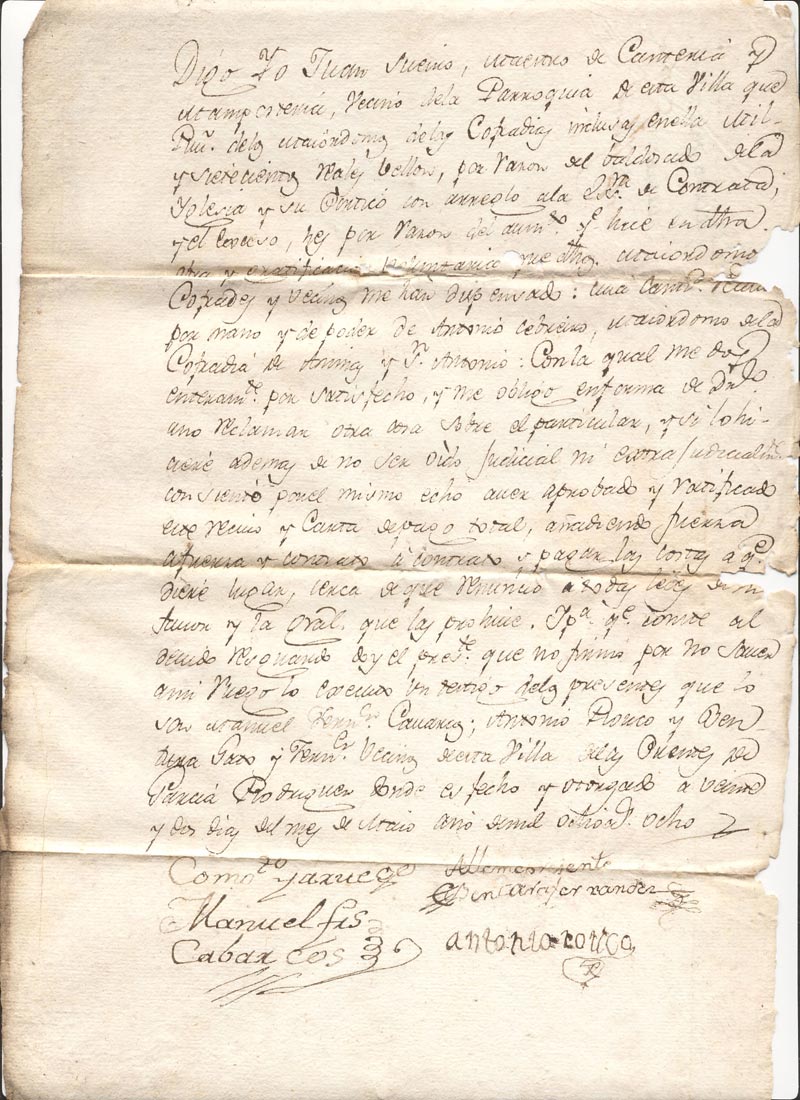 Digo Yo Juan Sueiro, Maestro de Canteria y
Mamposteria, Vecino dela Parroquia de esta Villa que
delos Maiordomos delas Cofradias inclusas enella Mil-
y sietecientos reales vellon, por razon del baldosado dela
Yglesia y su Portico con arreglo ala de Contrata;
y el exceso, hes por razon del aumto. qe. hice en dtha
obra y gratificacion voluntaria que dthos. Maiordomos
Cofrades y Vecinos me han dispensado: cuia
por mano y de poder de Antonio Cebreiro, Maiordomo dela
Cofradia de Animas y Sn. Antonio: Con la qual me doy
enteramte. por satisfecho, y me obligo en forma de Dro.
ano reclamar otra cosa sobre el particular, y si lo hi-
ciere ademas de no ser oido Judicial ni extra Judicialmte.
consiento por el mismo echo aver aprobado y ratificado
este recivo y Carta de pago total, añadiendo fuerza
afuerza y contrato á contrato y pagar las costas a qe.
diere lugar, cerca de que renuncio atodas leies de mi
favor y la Gral. que las prohive. Ypa. qe. conste al
devido resguardo doy el preste. que no firmo por no saver
ami ruego lo executa un testigo delos presentes que lo
son Manuel Fernz. Cavarcos; Antonio Rouco y Ben-
tura Gato y Fernz. Vecinos de esta Villa delas Puentes de
Garcia Rodriguez donde es fecho y otorgado a veinte
y dos dias del mes de Maio año de mil ochocs. ocho
Como tgo y a ruego
Manuel frs
Cabarcos
Alleme presente
Bentura fernandez
antonio rouco